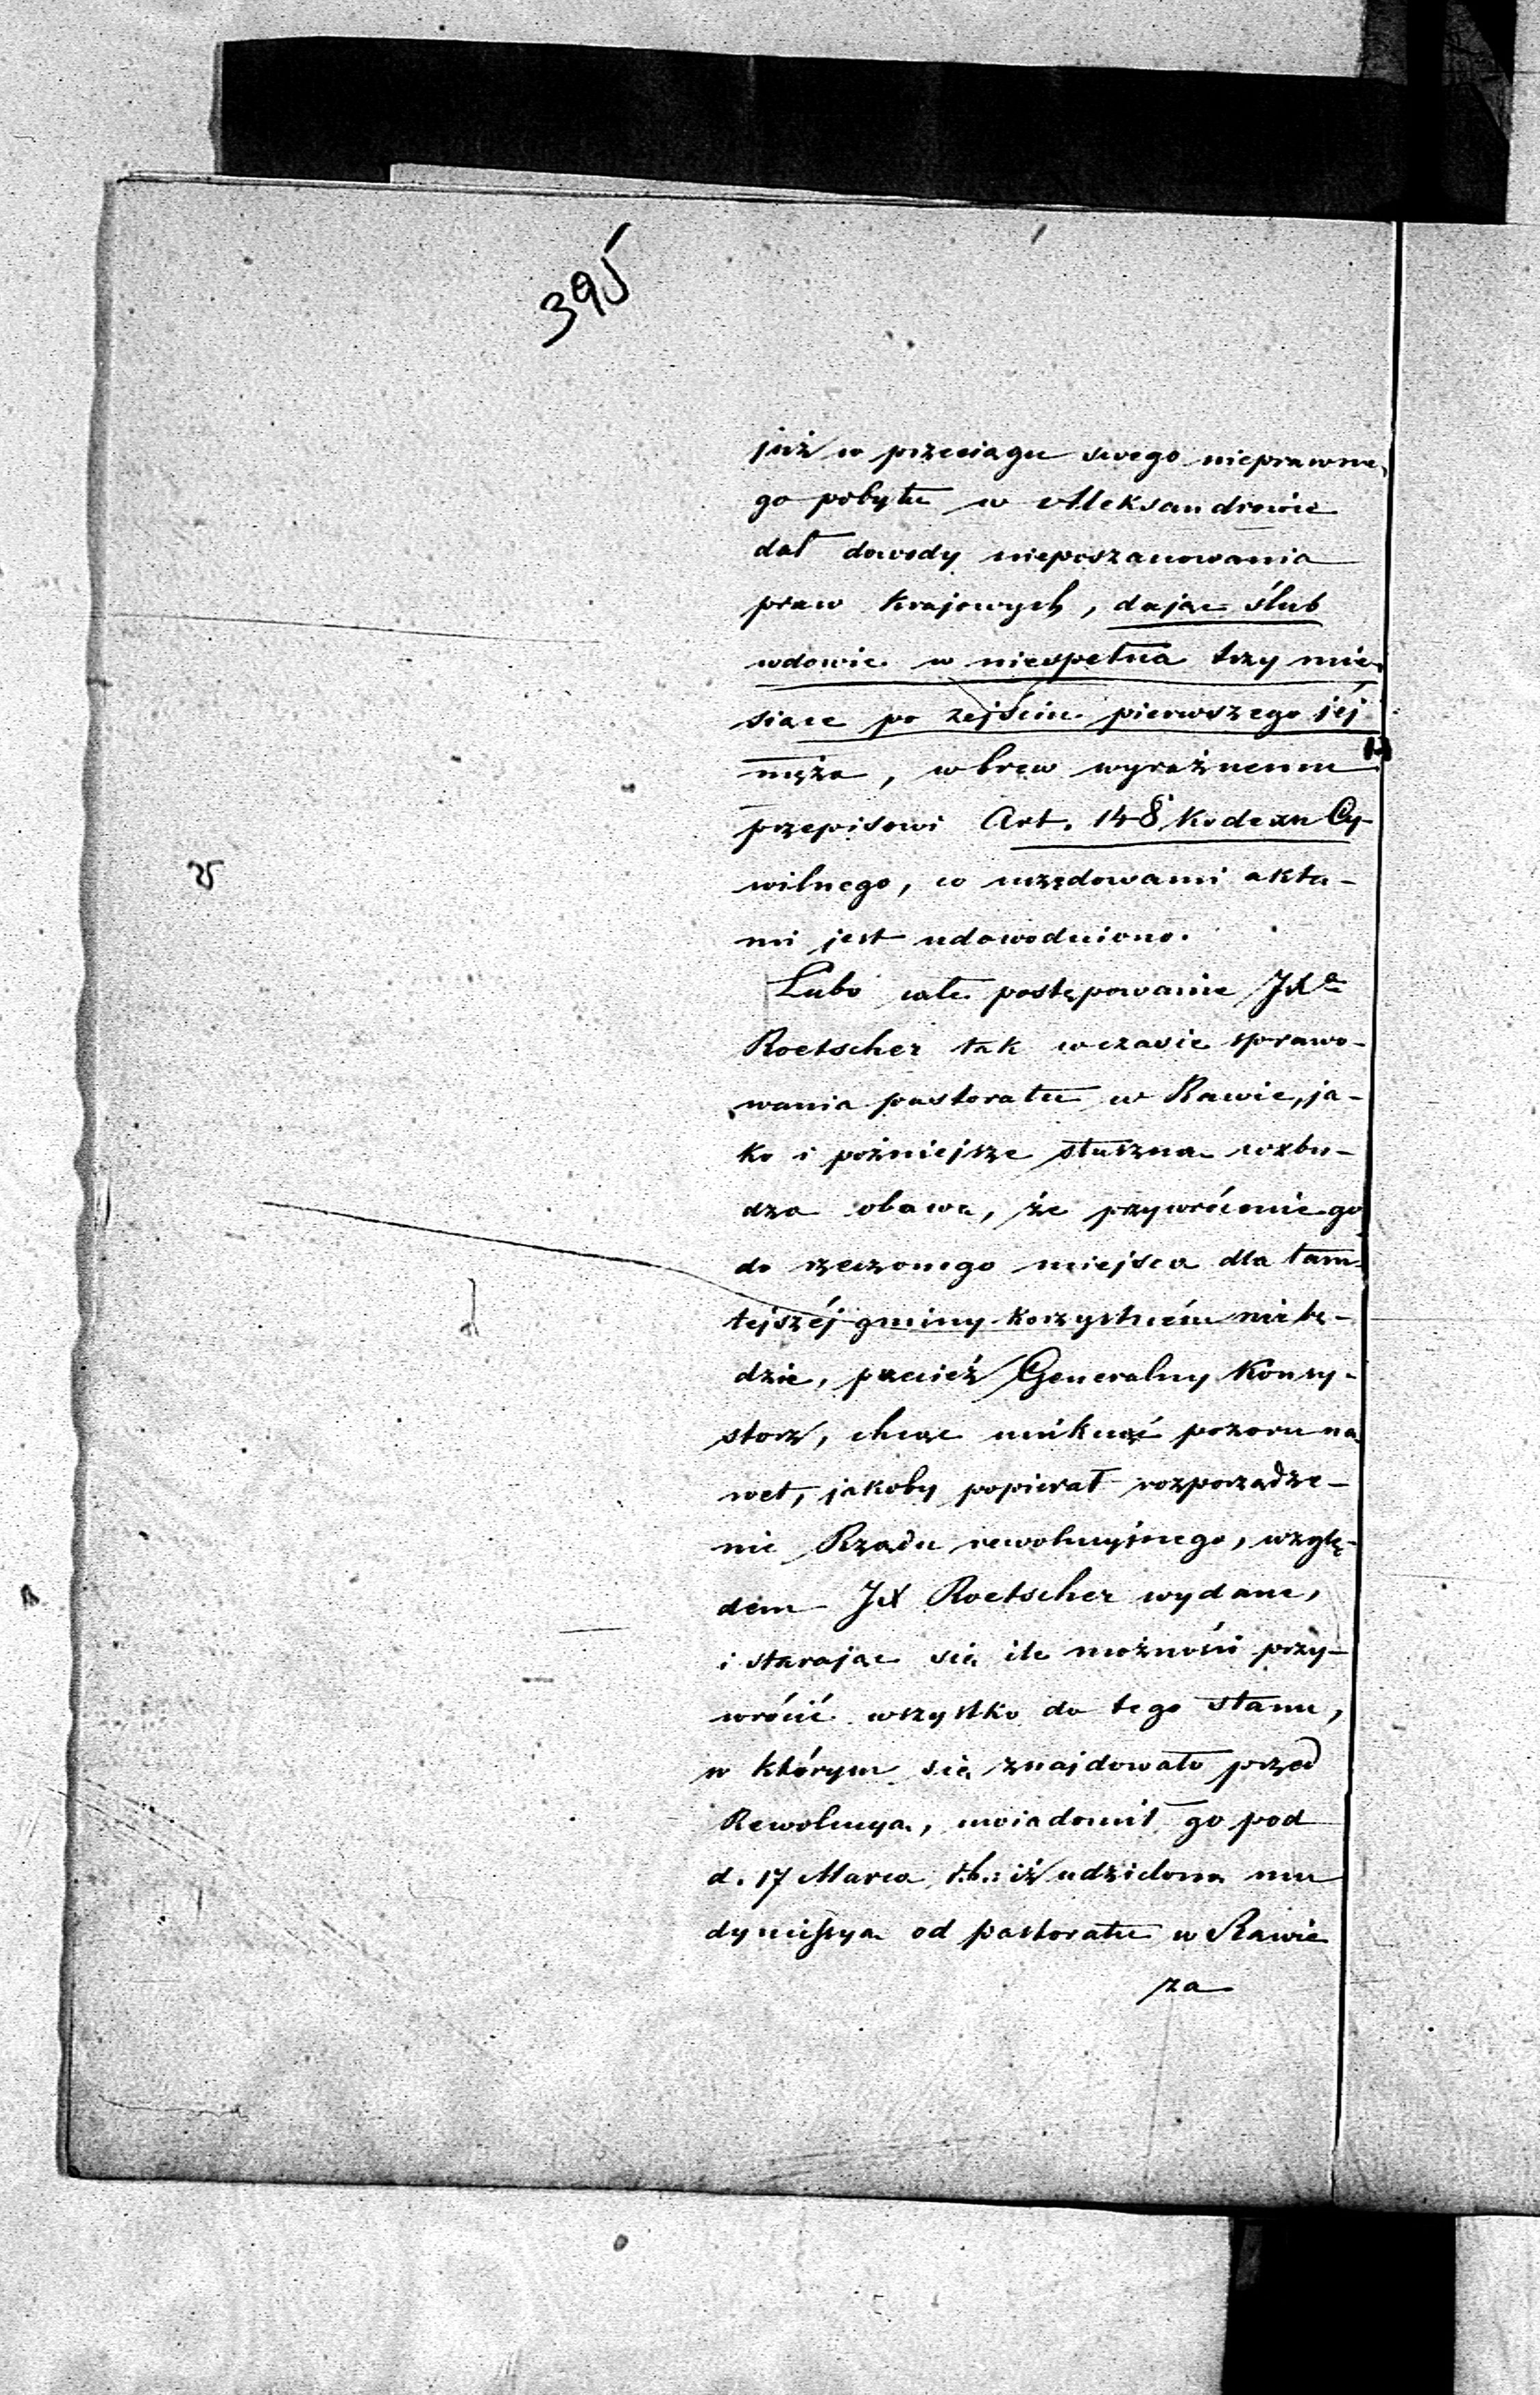 395
już w przeciągu swego nieprawne,
go pobytu w Aleksandrowie
dał dowody nieposzanowania
praw krajowych, dając ślub
wdowie w niespełna trzy mie,
siące po zejściu pierwszego jéj
męża, wbrew wyraźnemu
przepisowi Art. 148 Kodexu Cy-
wilnego, co urzędowami akta-
mi jest udowodniono.
Lubo całe postępowanie JXa
Roetscher tak w czasie sprawo-
wania pastoratu w Rawie, ja-
ko i poźniejsze słuszną wzbu-
dza obawę, że przywrócenie go
do rzeczonego miejsca dla tam-
tejszéj gminy korzystném nie bę-
dzie, przecież Generalny Konsy-
storz, chcąc uniknąć pozoru na
wet, jakoby popierał rozporządze-
nie Rządu rewolucyjnego, wzglę-
dem JX Roetscher wydane,
i starając się ile możności przy-
wrócić wszystko do tego stanu,
w którym się znajdowało przed
Rewolucyą, uwiadomił go pod
d. 17 Marca r.b.: iż udzielona mu
dymissya od pastoratu w Rawie
za